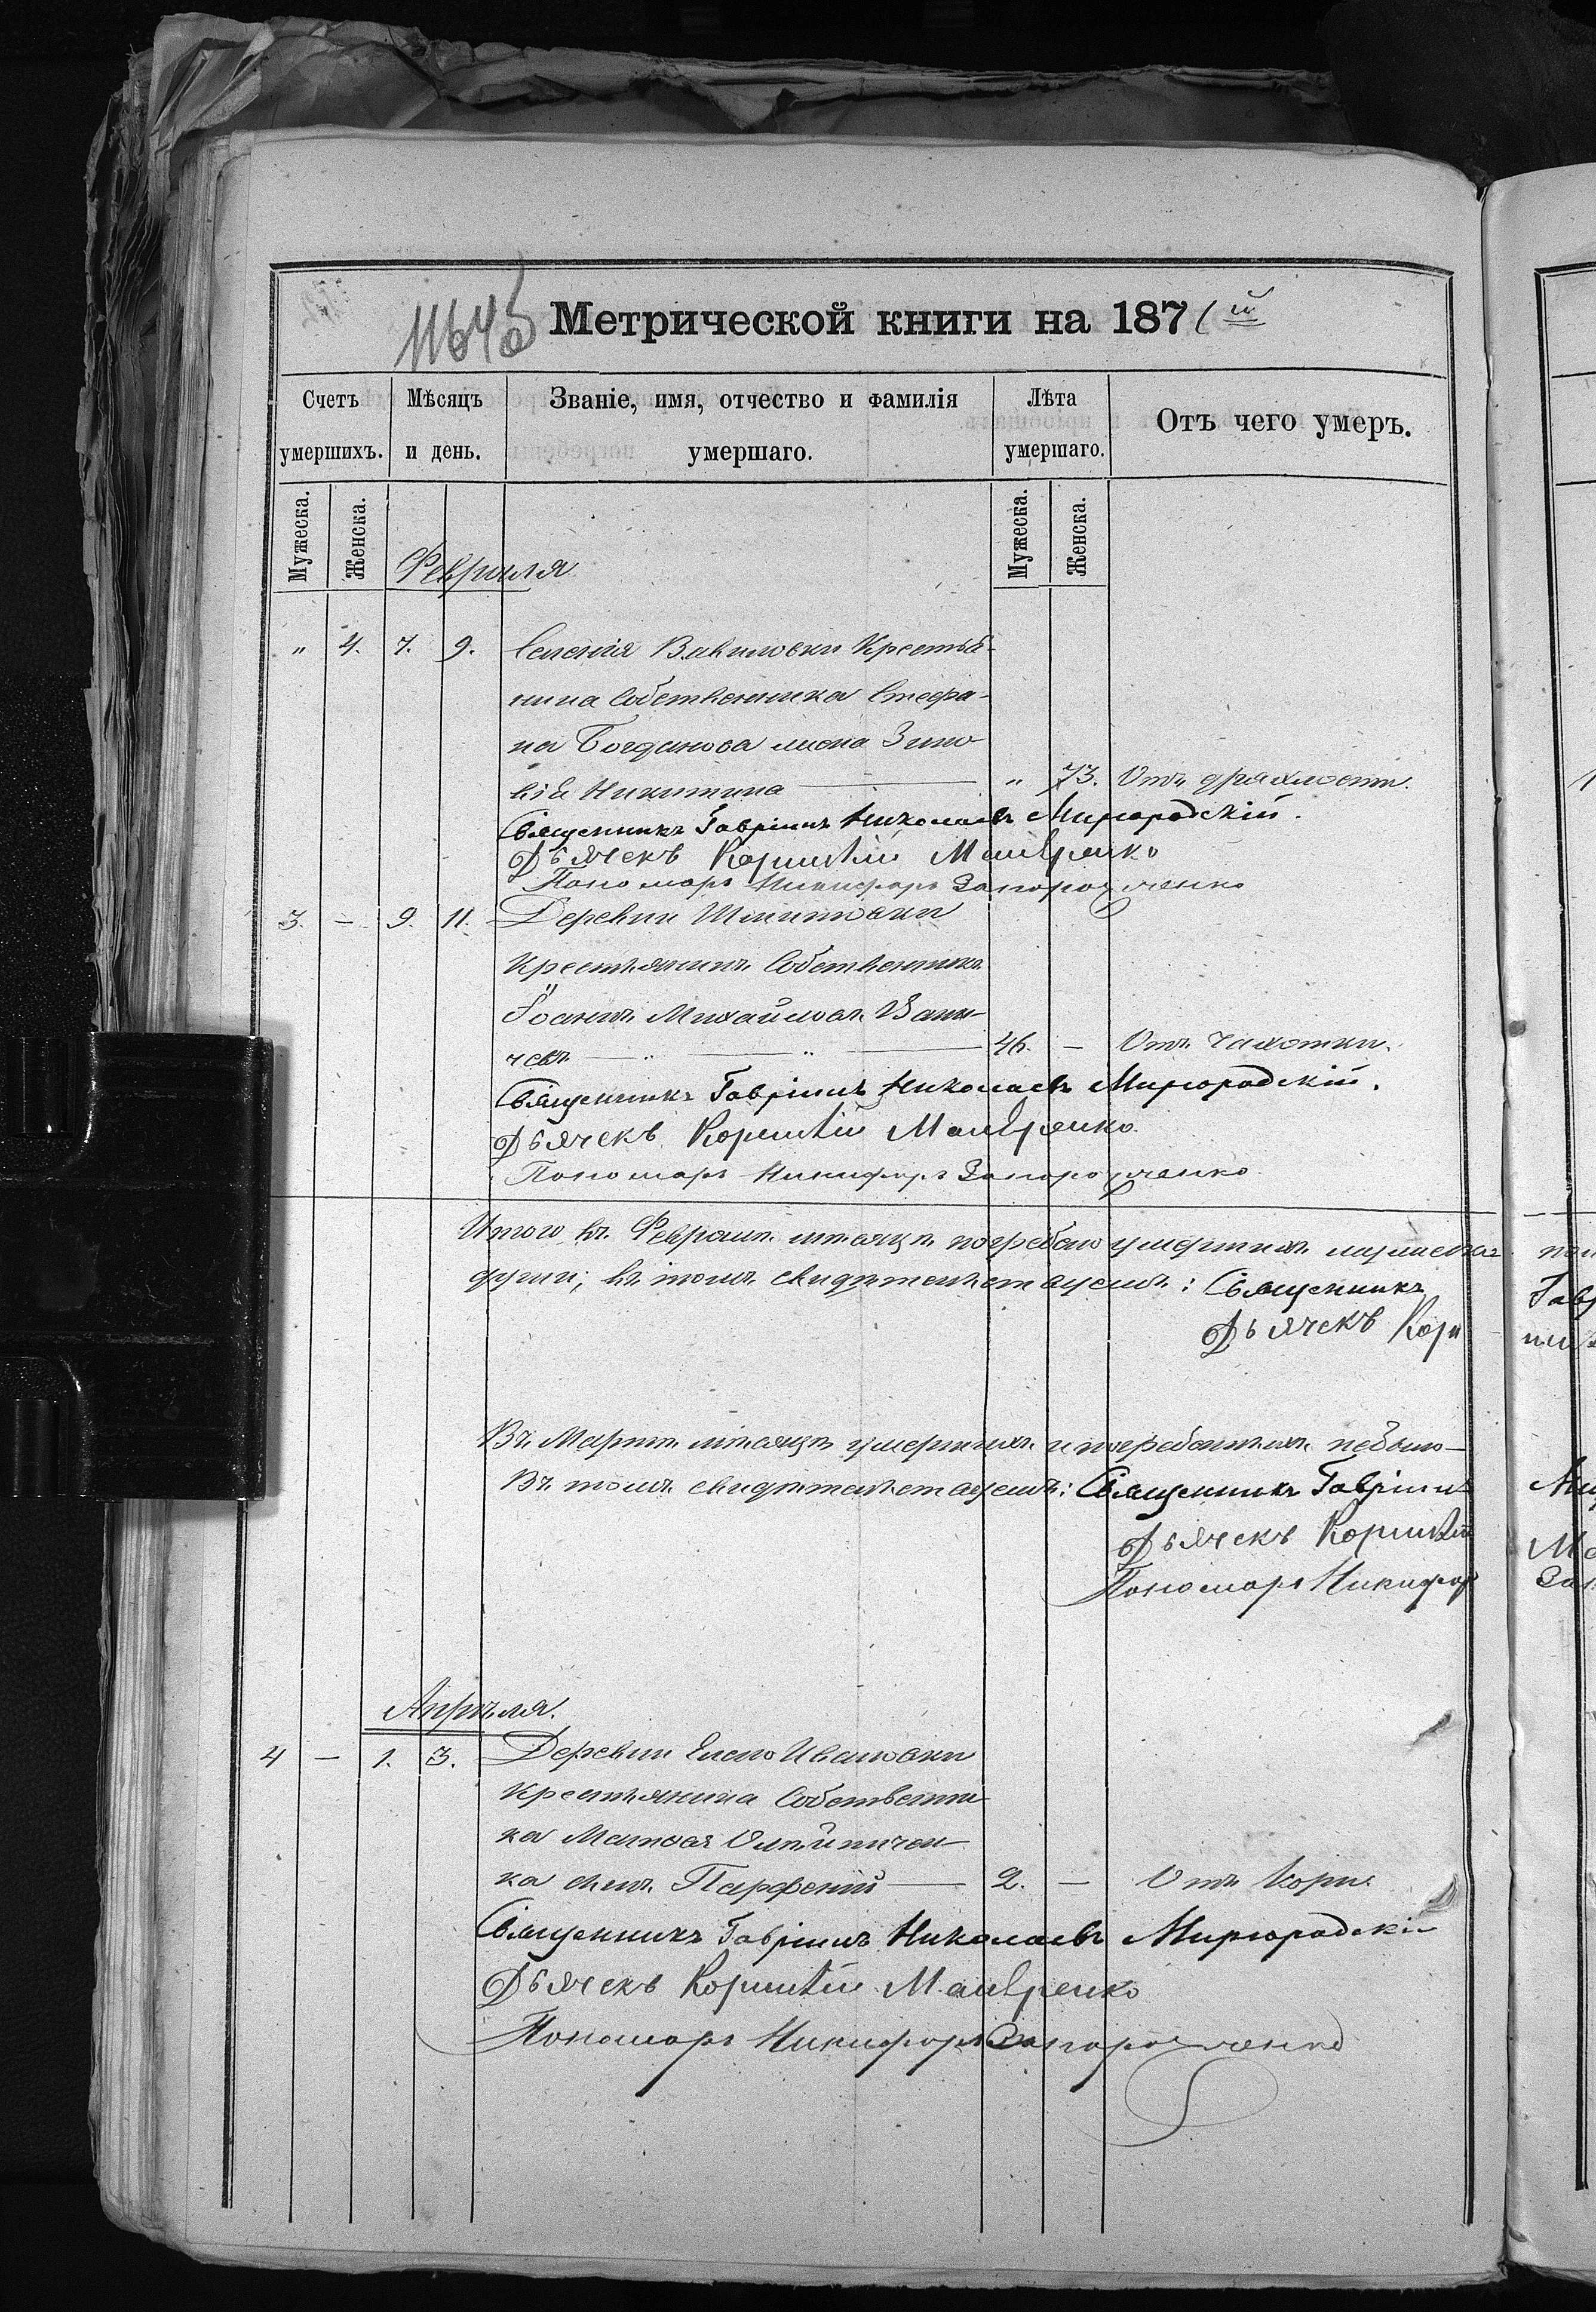 Метрической книги на 1871й
Счетъ умершихъ.
Мѣсяцъ и день.
Званіе, имя, отчество и фамилія умершаго.
Лѣта умершаго.
Отъ чего умеръ.
Мужеска.
Женска.
Мужеска.
Женска.
Февраля
" 4. 7. 9. Селенія Вавиловки Крестья-
нина Собственника Стефа-
на Богданова жена Зино-
вія Никитина — " 73. Отъ дряхлости.
Священникъ Гавріилъ Николаевъ Миргородскій.
Дьячекъ Корнилій
Пономарь Никифоръ Запорожченко
3. — 9. 11. Деревни
Крестьянинъ Собственникъ
Іоаннъ Михайловъ
46. — Отъ Чахотки.
Священникъ Гавріилъ Николаевъ Миргородскій.
Дьячекъ Корнилій
Пономарь Никифоръ Запорожченко
Итого въ Февралѣ мѣсяцѣ погребено умершихъ мужеска
въ томъ свидѣтельствуемъ: Священникъ
Дьячекъ Корн
Въ Мартѣ мѣсяцѣ умершихъ и погребенныхъ небыло
Въ томъ свидѣтельствуемъ: Священникъ Гавріилъ
Дьячекъ Корнилій
Пономарь Никифор
Апрѣля.
4 — 1. 3. Деревни Елено Ивановки
Крестьянина Собственни
ка Матвея
ка сынъ Парфеній — 2. — Отъ Кори.
Священникъ Гавріилъ Николаевъ Миргородскій
Дьячекъ Корнилій
Пономарь Никифоръ Запорожченко